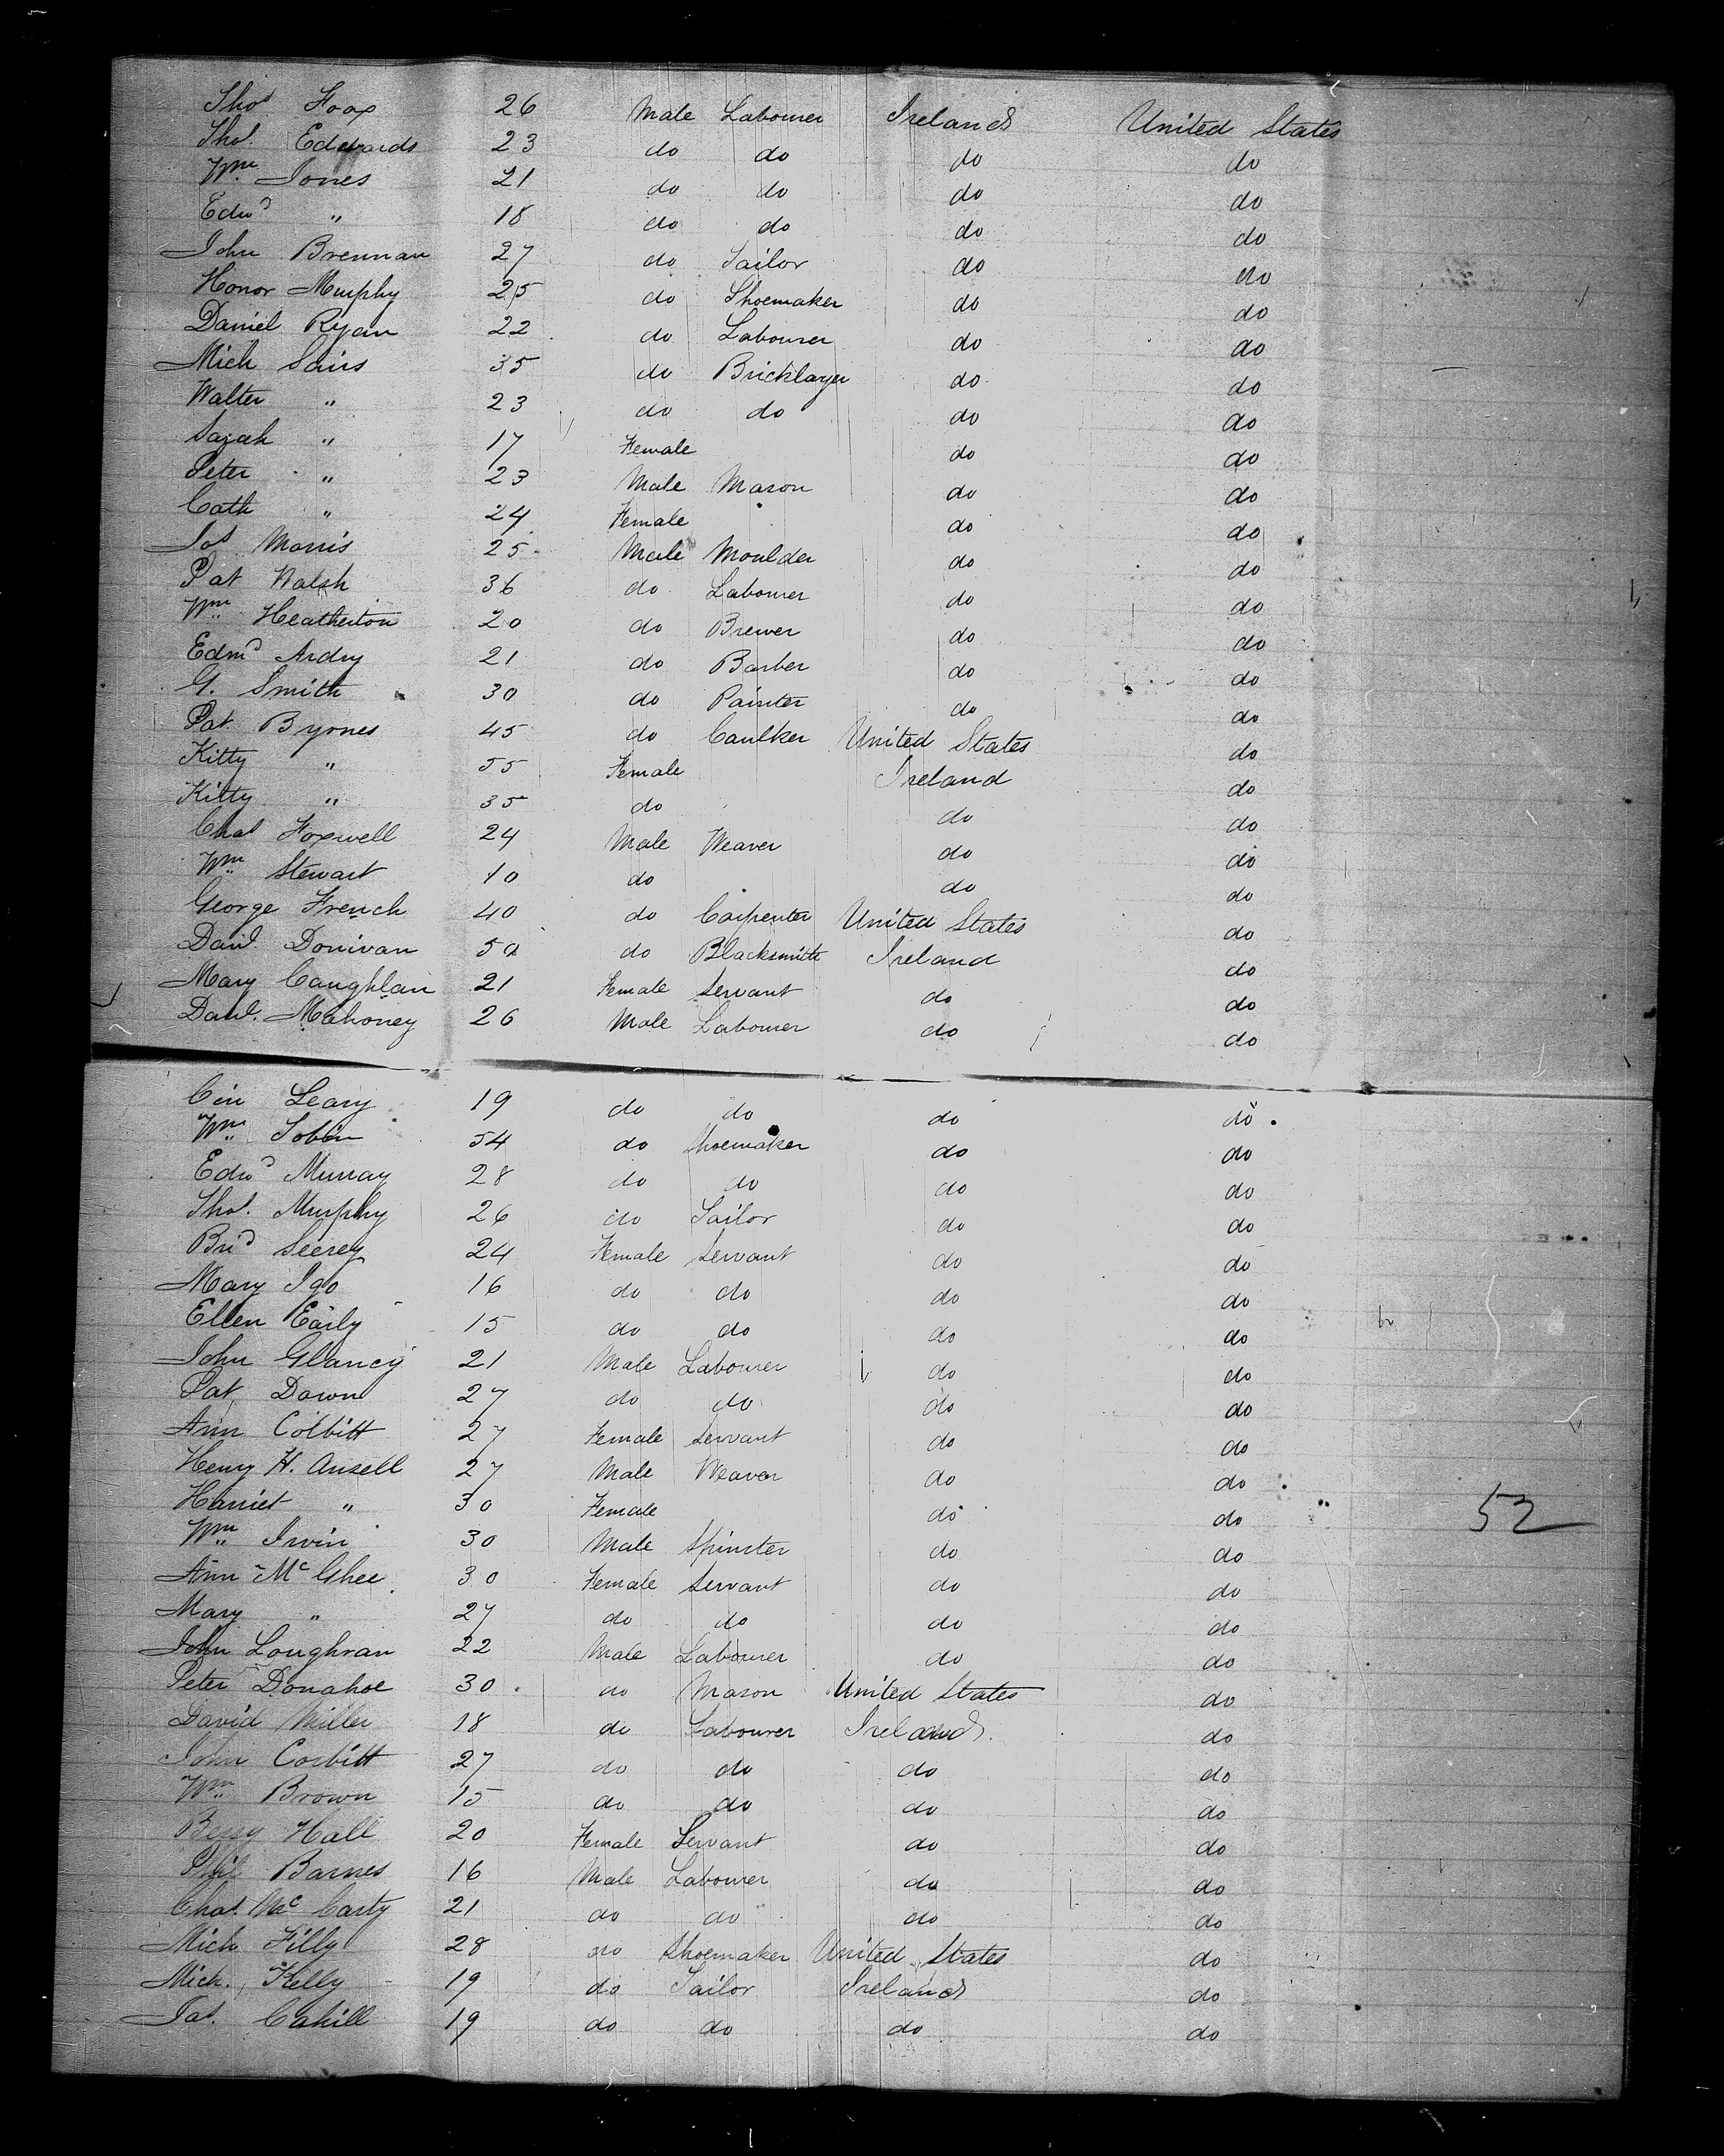 Thos Foox 26 Male Labourer Ireland United States
Thos. Edwards 23 do do do do
Wm. Jones 21 do do do do
Edwd " 18 do do do do
John Brennan 27 do Tailor do do
Honor Murphy 25 do Shoemaker do do
Daniel Ryan 22 do Labourer do do
Mich Sairs 35 do Bricklayer do do
Walter " 23 do do do do
Sarah " 17 Female do do
Peter " 23 Male Mason do do
Cath " 24 Female do do
Jas Morris 25 Male Moulder do do
Pat Walsh 36 do Labourer do do
Wm. Heatherton 20 do Brewer do do
Edmd Ardry 21 do Barber do do
G. Smith 30 do Painter do do
Pat. Byrnes 45 do Caulker United States do
Kitty " 55 Female Ireland do
Kitty " 35 do do do
Chas Foxwell 24 Male Weaver do do
Wm. Stewart 10 do do do
George French 40 do Carpenter United States do
Danl. Donivan 50 do Blacksmith Ireland do
Mary Caughlan 21 Female Servant do do
Danl. Mahoney 26 Male Labourer do do
Leary 19 do do do do
Wm. Tobin 54 do Shoemaker do do
Edwd Murray 28 do do do do
Thos. Murphy 26 do Tailor do do
Brid Seerey 24 Female Servant do do
Mary Igo 16 do do do do
Ellen Early 15 do do do do
John Glancy 21 Male Labourer do do
Pat Down 27 do do do do
Ann Colbitt 27 Female Servant do do
Henry H. Ansell 27 Male Weaver do do
Harriet " 30 Female do do
52
Wm. Irwin 30 Male Spinster do do
Ann McGhee 30 Female Servant do do
Mary " 27 do do do do
John Loughran 22 Male Labourer do do
Peter Donahoe 30 do Mason United States do
David Miller 18 do Labourer Ireland do
John Corbitt 27 do do do do
Wm. Brown 15 do do do do
Bessy Hall 20 Female Servant do do
Phil Barnes 16 Male Labourer do do
Chas. McCarty 21 do do do do
Mich Filly 28 do Shoemaker United States do
Mich. Kelly 19 do Tailor Ireland do
Jas. Cahill 19 do do do do